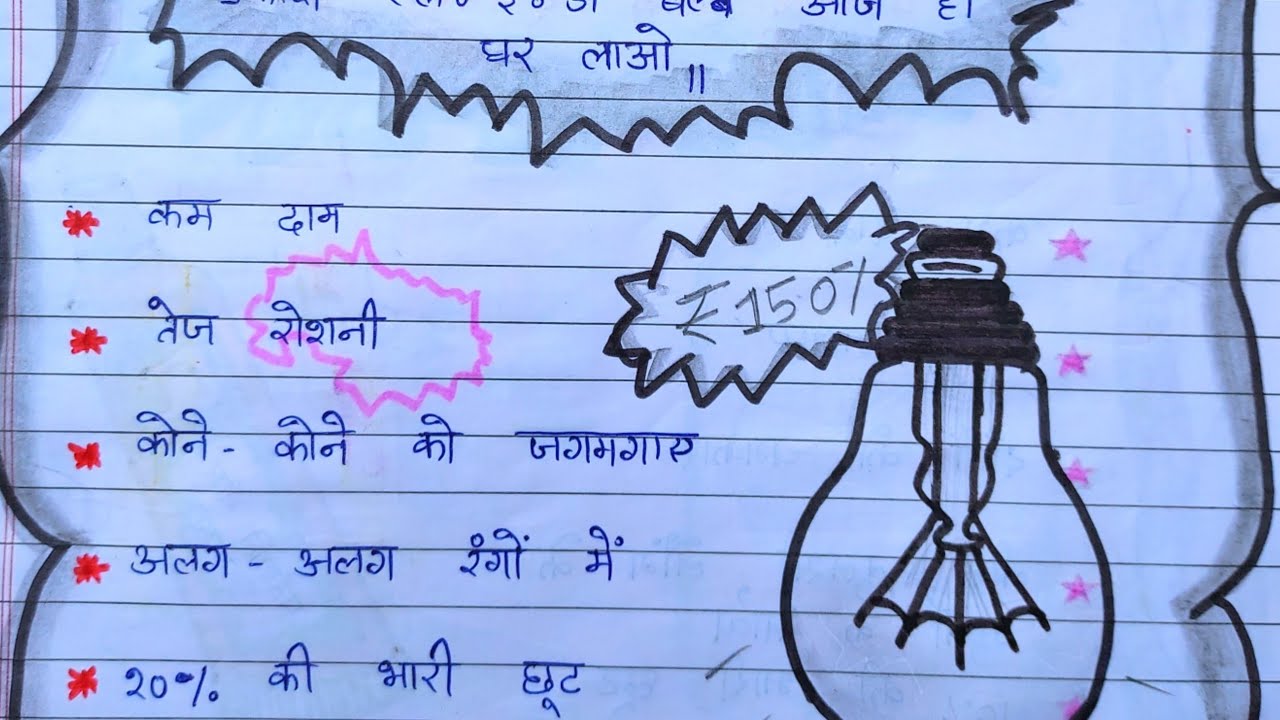 एल० ई० डी बल्ब आज ही
घर लाओ॥
कम दाम
₹150/
तेज रोशनी
कोने-कोने को जगमगाए
अलग-अलग रंगों में
२०% की भारी छूट